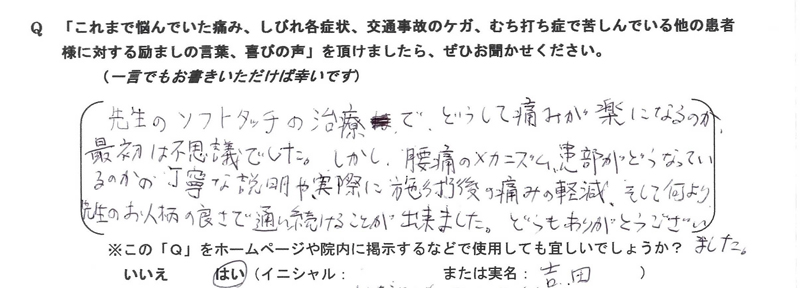 Q 「これまで悩んでいた痛み、しびれ各症状、交通事故のケガ、むち打ち症で苦しんでいる他の患者
様に対する励ましの言葉、喜びの声」を頂けましたら、ぜひお聞かせください。
（一言でもお書きいただけば幸いです）
先生のソフトタッチの治療で、どうして痛みが楽になるのか、
最初は不思議でした。しかし、腰痛のメカニズム、患部がどうなってい
るのかの丁寧な説明や、実際に施術後の痛みの軽減、そして何より
先生のお人柄の良さで通い続けることが出来ました。どうもありがとうござい
ました。
※この「Q」をホームページや院内に掲示するなどで使用しても宜しいでしょうか？
いいえ はい（イニシャル： または実名：吉田 ）